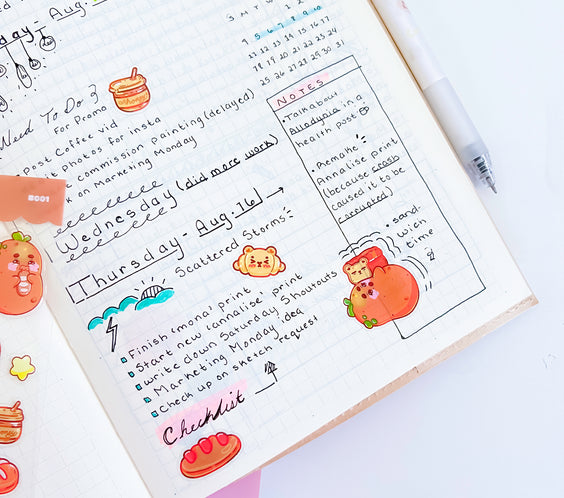 day - Aug.
S M T W T F S
5 6 7 8 9 10
11 12 13 14 15 16 17
18 19 20 21 22 23 24
25 26 27 28 29 30 31
Need To Do
For Promo
Post Coffee vid
photos for insta
commission painting (delayed)
on Marketing Monday
Wednesday (did more work)
Thursday - Aug. 16 →
Scattered Storms
Finish (mona) print
Start new (annalise print
write down Saturday Shoutouts
Marketing Monday idea
Check up on sketch request
Checklist
NOTES
• Talk about
Allodynia in a
health post
• Remake
Annalise print
(because crash
caused it to be
corrupted)
• sand-
wich
time